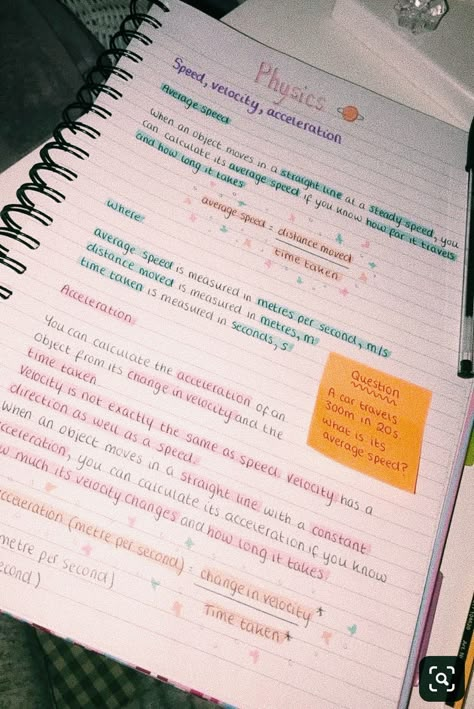 Physics
Speed, velocity, acceleration
Average speed
When an object moves in a straight line at a steady speed, you
can calculate its average speed if you know how far it travels
and how long it takes
average speed = distance moved
time taken
where:
average speed is measured in metres per second, m/s
distance moved is measured in metres, m
time taken is measured in seconds, s
Acceleration
You can calculate the acceleration of an
object from its change in velocity and the
time taken
Velocity is not exactly the same as speed. Velocity has a
direction as well as a speed.
When an object moves in a straight line with a constant
acceleration, you can calculate its acceleration if you know
how much its velocity changes and how long it takes
acceleration (metre per second) = change in velocity *
metre per second) Time taken *
second)
Question
A car travels
300m in 20s.
What is its
average speed?